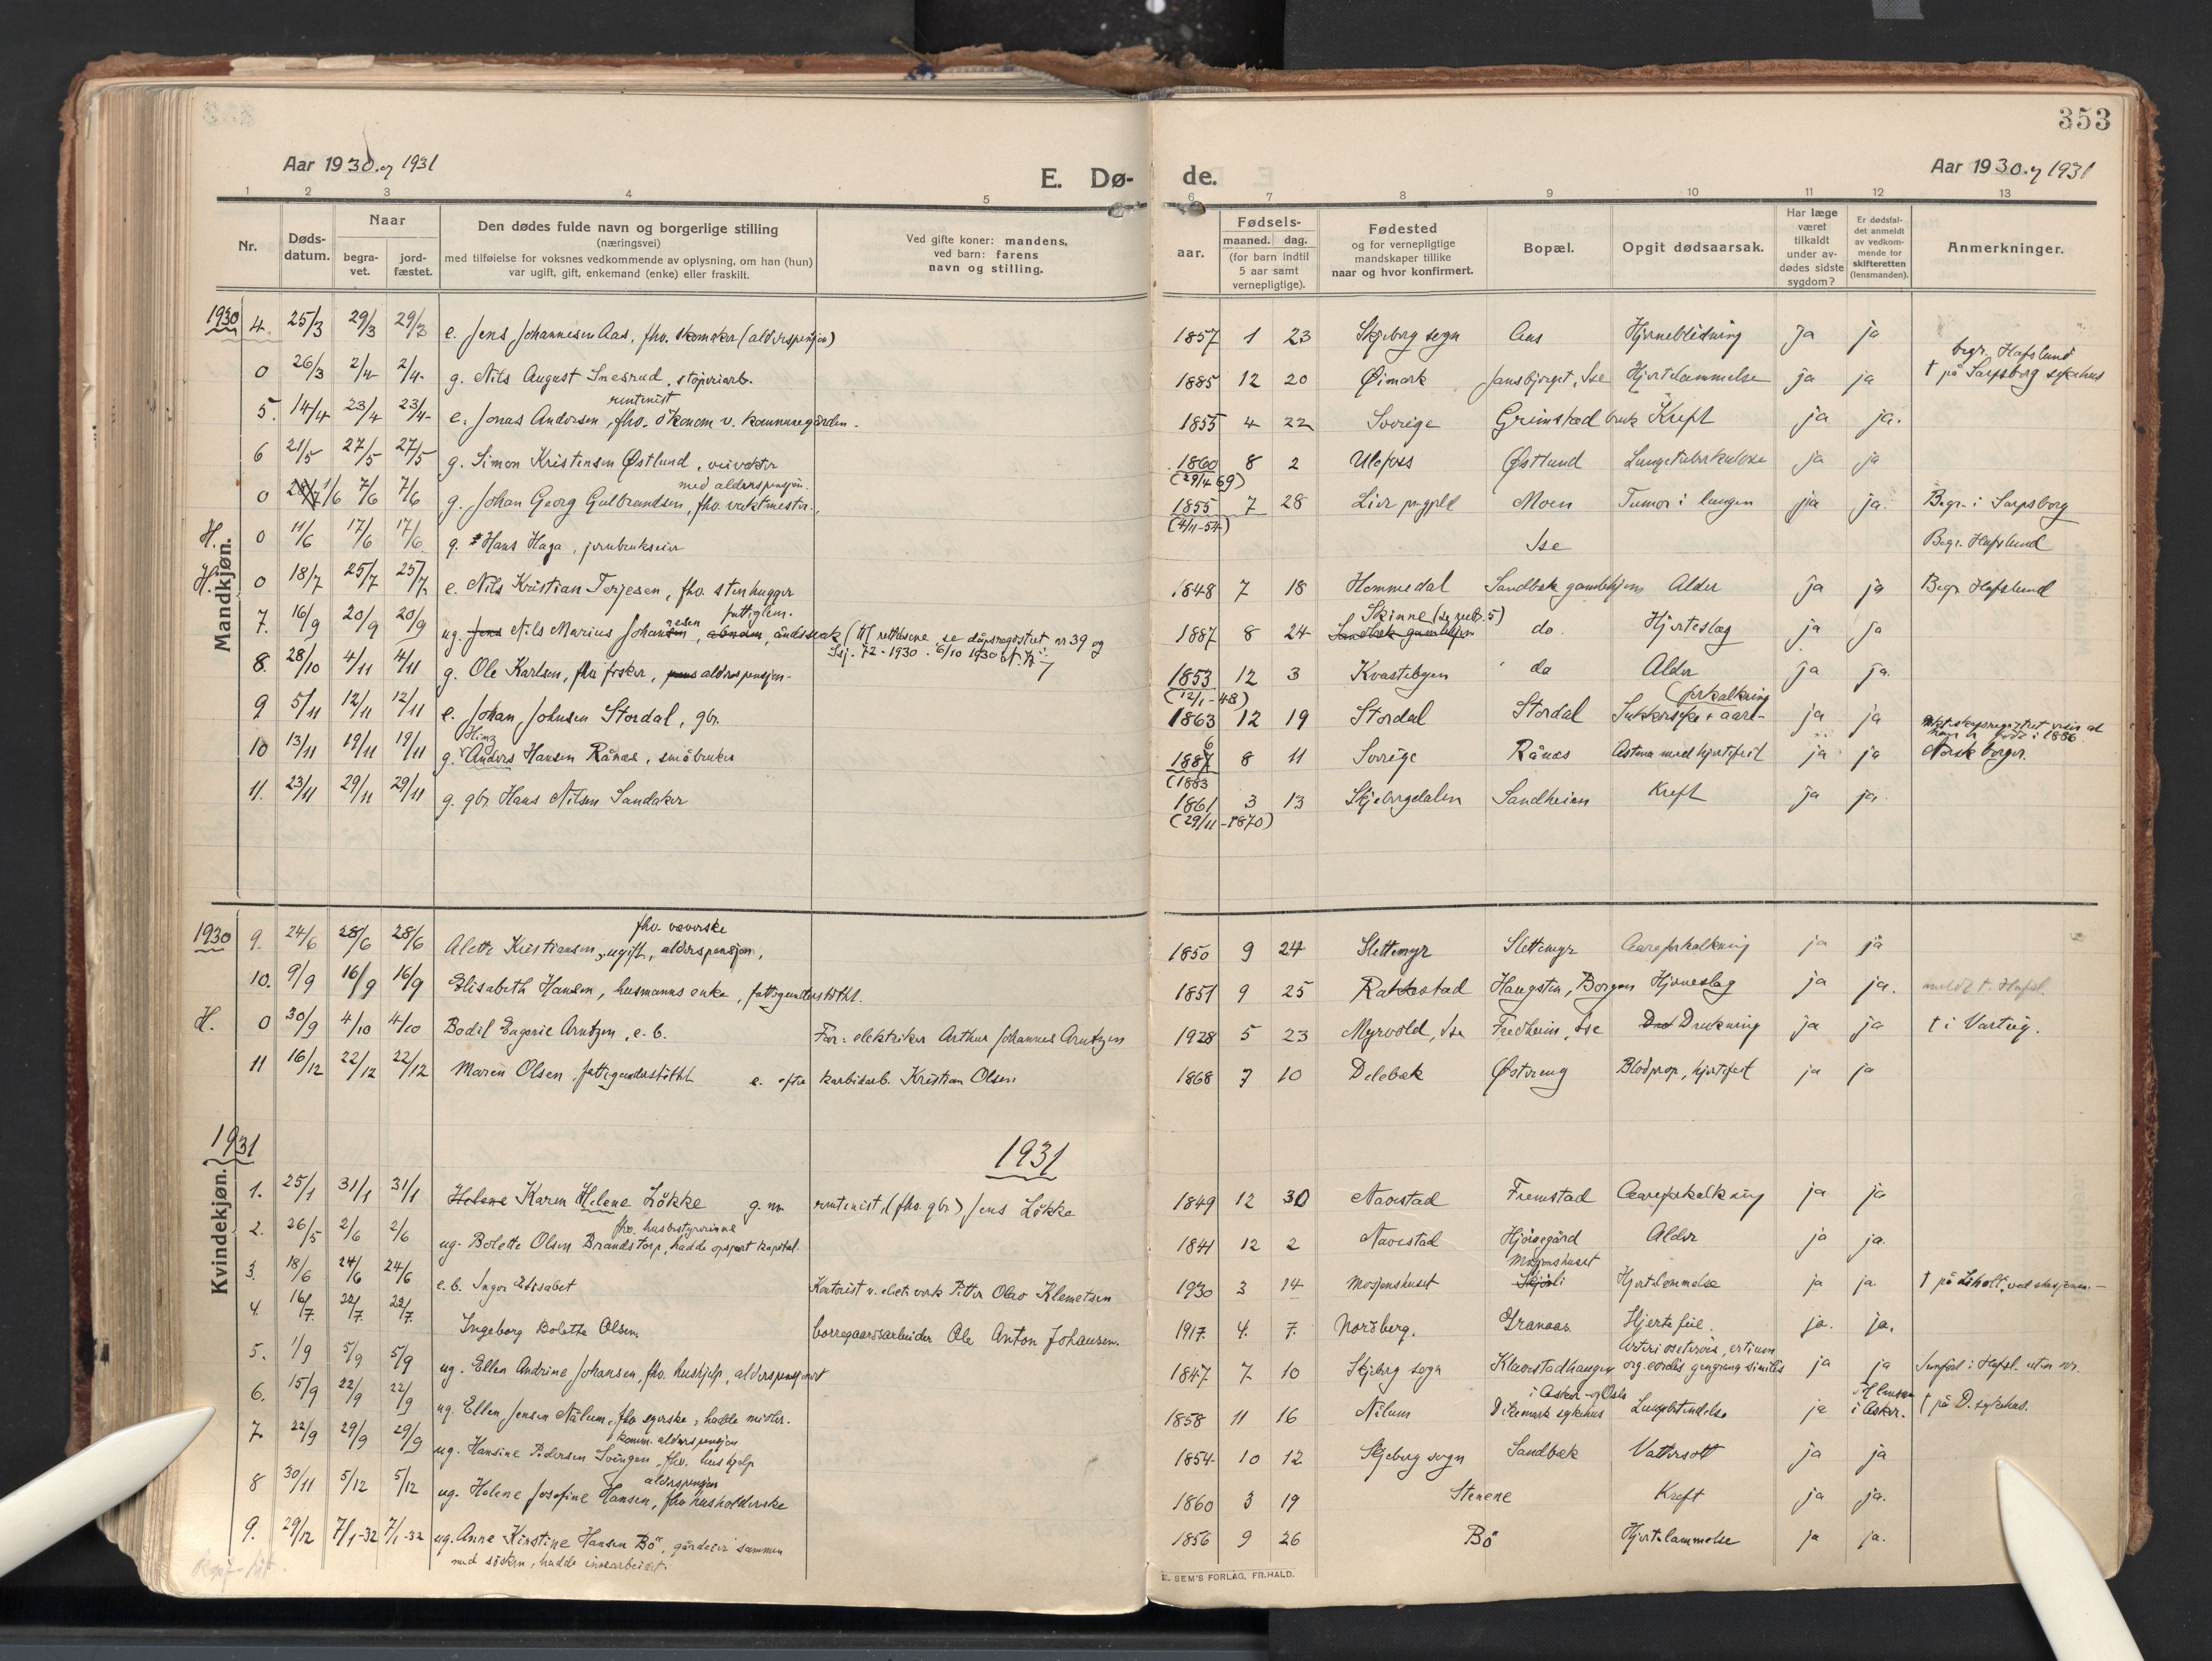 353
Aar 1930 og 1931
E. Dø-
de.
Aar 1930 og 1931
1 2 3 4 5 6 7 8 9 10 11 12 13
Nr. Døds-datum. Naar begra-vet. jord-fæstet. Den dødes fulde navn og borgerlige stilling (næringsvei) med tilføielse for voksnes vedkommende av oplysning, om han (hun) var ugift, gift, enkemand (enke) eller fraskilt. Ved gifte koner: mandens, ved barn: farens navn og stilling. Fødsels- aar. maaned. dag. (for barn indtil 5 aar samt vernepligtige). Fødested og for vernepligtige mandskaper tillike naar og hvor konfirmert. Bopæl. Opgit dødsaarsak. Har læge været tilkaldt under av-dødes sidste sygdom? Er dødsfal-det anmeldt av vedkom-mende for skifteretten (lensmanden). Anmerkninger.
Mandkjøn.
1930 4. 25/3 29/3 29/3 e. Jens Johannesen Aas, fhv. skomaker (alderspensjon) 1857 1 23 Skjeberg sogn Aas Hjerneblødning Ja ja
0 26/3 2/4 2/4 g. Nils August Snesrud, støperiarb. 1885 12 20 Øimark Jansbjerget, Ise Hjertelammelse ja ja begr. Hafslund † på Sarpsborg sykehus
rentenist
5. 14/4 23/4 23/4 e. Jonas Andersen, fhv. økonom v. kommunegården. 1855 4 22 Sverige Grimstad bruk Kreft ja ja.
6 21/5 27/5 27/5 g. Simon Kristensen Østlund, veivokter 1860 8 2 Ulefoss Østlund Lungetuberkulose ja ja
(29/4 69)
med alderspensjon.
0 1/6 7/6 7/6 g. Johan Georg Gulbrandsen, fhv. vaktmester. 1855 7 28 Lier prgjeld Moen Tumor i lungen ja ja Begr. i Sarpsborg
(4/11-54)
H. 0 11/6 17/6 17/6 g. Hans Haga, jernbrukseier Ise Begr. Hafslund
H. 0 18/7 25/7 25/7 e. Nils Kristian Terjesen, fhv. stenhugger 1848 7 18 Hommedal Sandbæk gamlehjem Alder ja ja Begr. Hafslund
fattiglem.
7. 16/9 20/9 20/9 ug. Jens Nils Marius Johannesen, åndssvak (til rettelsene, se dåpsregistret nr 39 og 1887 8 24 Skinne Sandbæk gamlehjem do. Hjerteslag ja ja
Isj. 72-1930. 6/10 1930
8. 28/10 4/11 4/11 g. Ole Karlsen, fhv fisker, alderspensjon 1853 12 3 Kvastebyen do Alder ja ja.
(12/1-48)
9 5/11 12/11 12/11 e. Johan Johnsen Stordal, gbr. 1863 12 19 Stordal Stordal Sukkersyke + aare- (forkalkning ja ja
10 13/11 19/11 19/11 g. Anders Hansen Rånæs, småbruker 1887 6 8 11 Sverige Rånæs Astma med hjertefeil ja ja Norsk borger.
(1883
11. 23/11 29/11 29/11 g. gbr. Hans Nilsen Sandaker 1861 3 13 Skjebergdalen Sandheien Kreft ja ja.
(29/11-1870)
Kvindekjøn.
fhv. veverske
1930 9. 24/6 28/6 28/6 Alette Kristiansen, ugift, alderspensjon, 1850 9 24 Slettemyr Slettemyr Aareforkalkning ja ja
10. 9/9 16/9 16/9 Elisabeth Hansen, husmanns enke, fattigunderstøttet. 1851 9 25 Rakkestad Haugsten, Borgen Hjerneslag ja ja. meldt t. Hafsl.
H. 0 30/9 4/10 4/10 Bodil Eugenie Arntzen, e. b. Far: elektriker Arthur Johannes Arntzen 1928 5 23 Myrvold, Ise Fredheim, Ise Drukning ja ja † i Varteig.
11 16/12 22/12 22/12 Maren Olsen, fattigunderstøttet e. efter karbidarb. Kristian Olsen 1868 7 10 Delebæk Østereng Blodprop, hjertefeil ja ja
1931
1931
1. 25/1 31/1 31/1 Helene Karen Helene Løkke g. m. rentenist, (fhv. gbr.) Jens Løkke 1849 12 30 Navestad Fremstad Aareforkalkning ja ja
fhv. husbestyrerinne
2. 26/5 2/6 2/6 ug. Bolette Olsen Brandstorp, hadde opspart kapital. 1841 12 2 Navestad Hjørnegård Alder ja ja.
3. 18/6 24/6 24/6 e. b. Inger Elisabet Kontorist v. elektr. verk Petter Olav Klemetsen 1930 3 14 Mosjonshuset Mosjonshuset Hjertelammelse ja ja † på
4. 16/7. 22/7. 22/7. Ingeborg Bolette Olsen. borregaardsarbeider Ole Anton Johansen. 1917. 4. 7. Nordberg. Granaas. Hjertefeil. ja. ja.
5. 1/9 5/9 5/9 ug. Ellen Andrine Johansen, fhv. hushjelp, alderspensjonert 1847 7 10 Skjeberg sogn Klavestadhaugen ja ja
6. 15/9 22/9 22/9 ug. Ellen Jensen Nålum, fhv syerske, hadde midler. 1858 11 16 Nålum Dikemark sykehus i Asker Lungebetendelse ja i Asker. † på D. sykehus.
komm. alderspensjon
7. 22/9 29/9 29/9 ug. Hansine Pedersen Svingen, fhv. hushjelp 1854 10 12 Skjeberg sogn Sandbæk Vattersott ja ja
alderspensjon
8 30/11 5/12 5/12 ug. Helene Josefine Hansen, fhv husholderske 1860 3 19 Stenene Kreft ja ja.
9. 29/12 7/1-32 7/1-32 ug. Anne Kirstine Hansen Bø, gårdeier sammen 1856 9 26 Bø Hjertelammelse ja ja.
med søsken, hadde innearbeidet.
E. SEM'S FORLAG, FR.HALD.